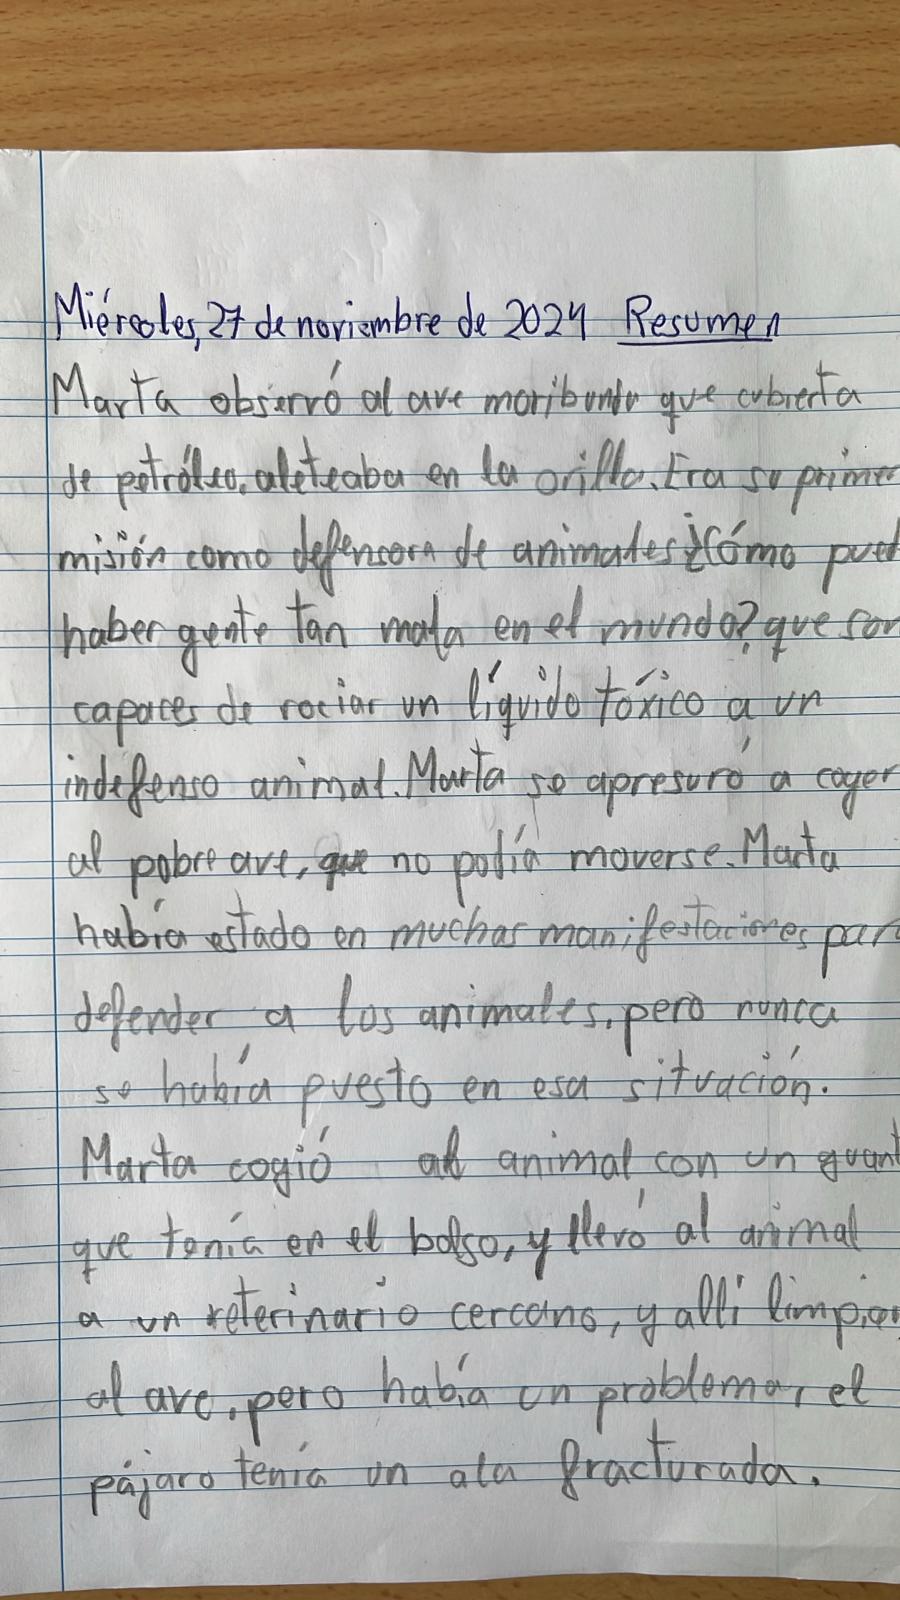 Miércoles, 27 de noviembre de 2024 Resumen
Marta observó al ave moribunda que cubierta
de petróleo, aleteaba en la orilla. Era su primer
misión como defensora de animales ¿Cómo pued
haber gente tan mala en el mundo? que son
capaces de rociar un líquido tóxico a un
indefenso animal. Marta se apresuró a coger
al pobre ave, que no podía moverse. Marta
había estado en muchas manifestaciones par
defender a los animales, pero nunca
se había puesto en esa situación.
Marta cogió al animal con un guant
que tenía en el bolso, y llevó al animal
a un veterinario cercano, y allí limpiar
al ave, pero había un problema, el
pájaro tenía un ala fracturada.